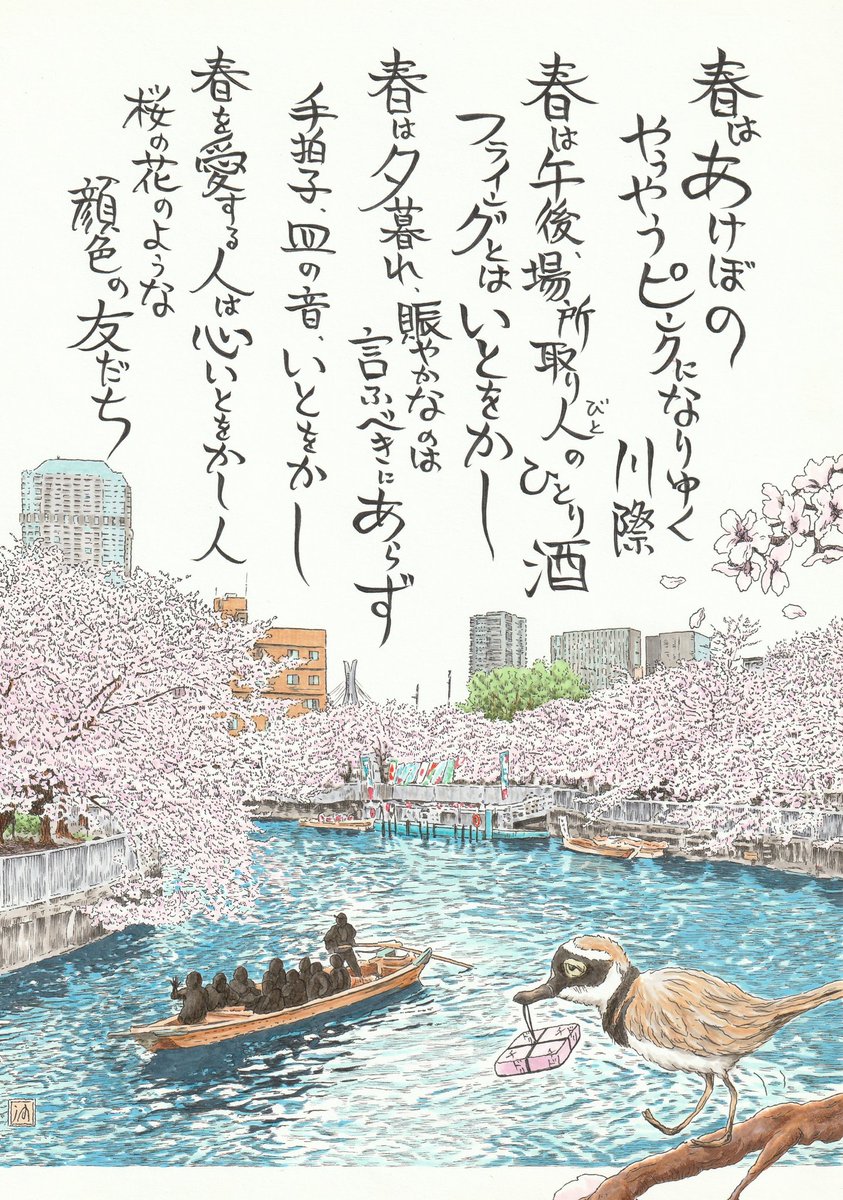 春はあけぼの
やうやうピンクになりゆく
川際
春は午後、場所取り人のひとり酒
びと
フライングとはいとをかし
春は夕暮れ、賑やかなのは
言ふべきにあらず
手拍子、皿の音、いとをかし
春を愛する人は心いとをかし人
桜の花のような
顔色の友だち